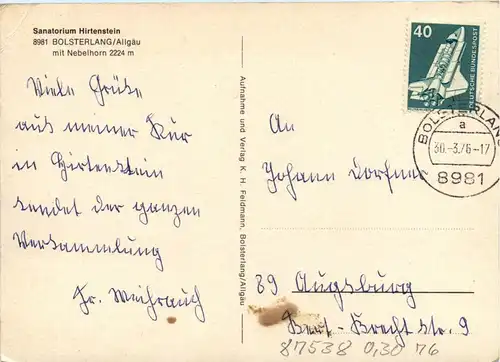 Sanatorium Hirtenstein
8981 BOLSTERLANG/Allgäu
mit Nebelhorn 2224 m
Viele Grüße
aus meiner Kur
in Hirtenstein
sendet der ganzen
Versammlung
Fr. Weihrauch
Aufnahme und Verlag K. H. Feldmann, Bolsterlang/Allgäu
40
DEUTSCHE BUNDESPOST
BOLSTERLANG
a
30.-3.76-17
8981
An
Johann Dorfner
89 Augsburg
Bert-Brecht str. 9
87538 0,30 76